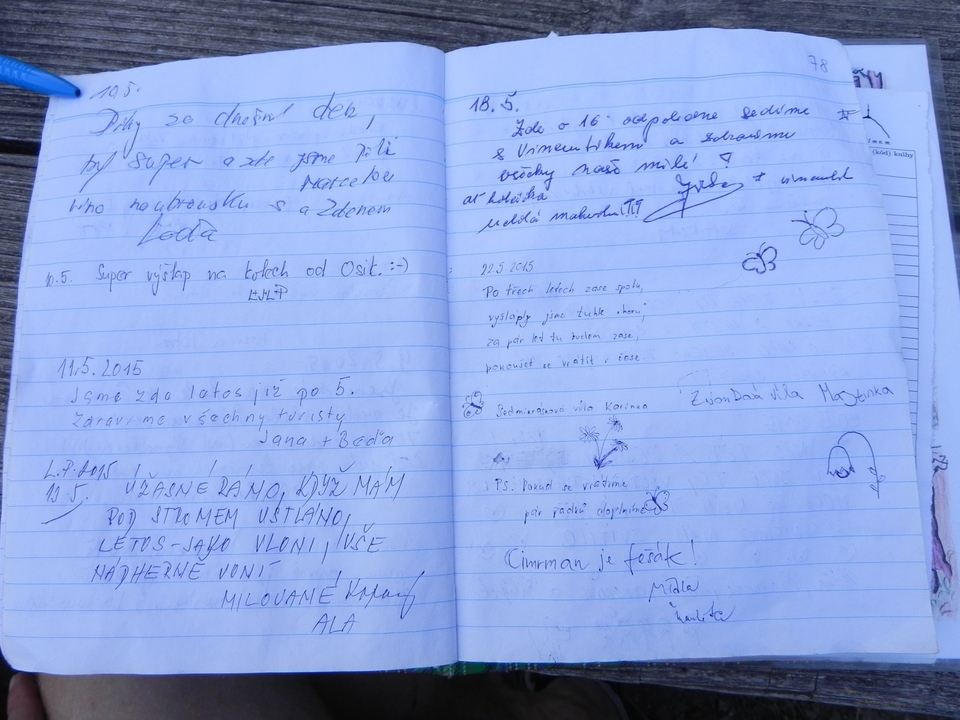 10.5.
Díky za dnešní den,
byl super a zde jsme pili
víno na ubrousku s Marcelou a Zdenem
Loďa
10.5. Super výšlap na kolech od Osík. :-)
11.5.2015
Jsme zde letos již po 5.
Zdravíme všechny turisty
Jana + Béďa
L.P. 2015
13.5. ÚŽASNÉ RÁNO, KDYŽ MÁM
POD STROMEM USTLÁNO,
LETOS-JAKO VLONI, VŠE
NÁDHERNĚ VONÍ
MILOVANÉ
ALA
78
18.5.
Zde o 16 odpoledne sedíme
s a zdravíme
všechny naše milé!
ať
udělá
22.5.2015
Po třech letech zase spolu,
vyšlaply jsme tuhle horu,
za pár let tu budem zase,
pokoušet se vrátit v čase
Sedmikrásková víla Karinka
ZvonDavá víla Majtinka
PS. Pokud se vrátíme
pár řádků doplníme
Cimrman je fešák!
Mídla
(kód) knihy